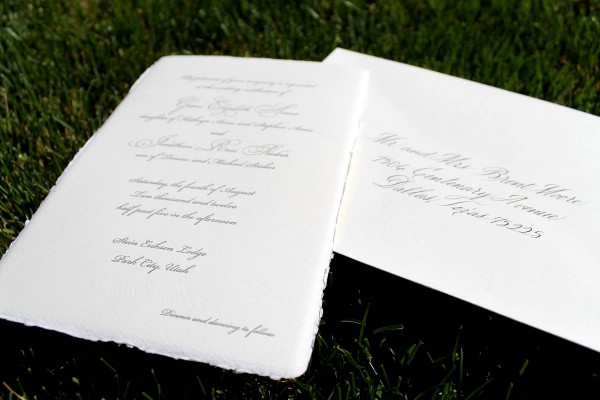 The pleasure of your company is requested
at the wedding celebration of
Elizabeth
daughter of Kathryn and Stephen
and
Jonathan
son of Dianne and Michael
Saturday the fourth of August
two thousand and twelve
half past five in the afternoon
Stein Eriksen Lodge
Park City, Utah
Dinner and dancing to follow
Mr. and Mrs. Brent
Centenary Avenue
Dallas, Texas 75225